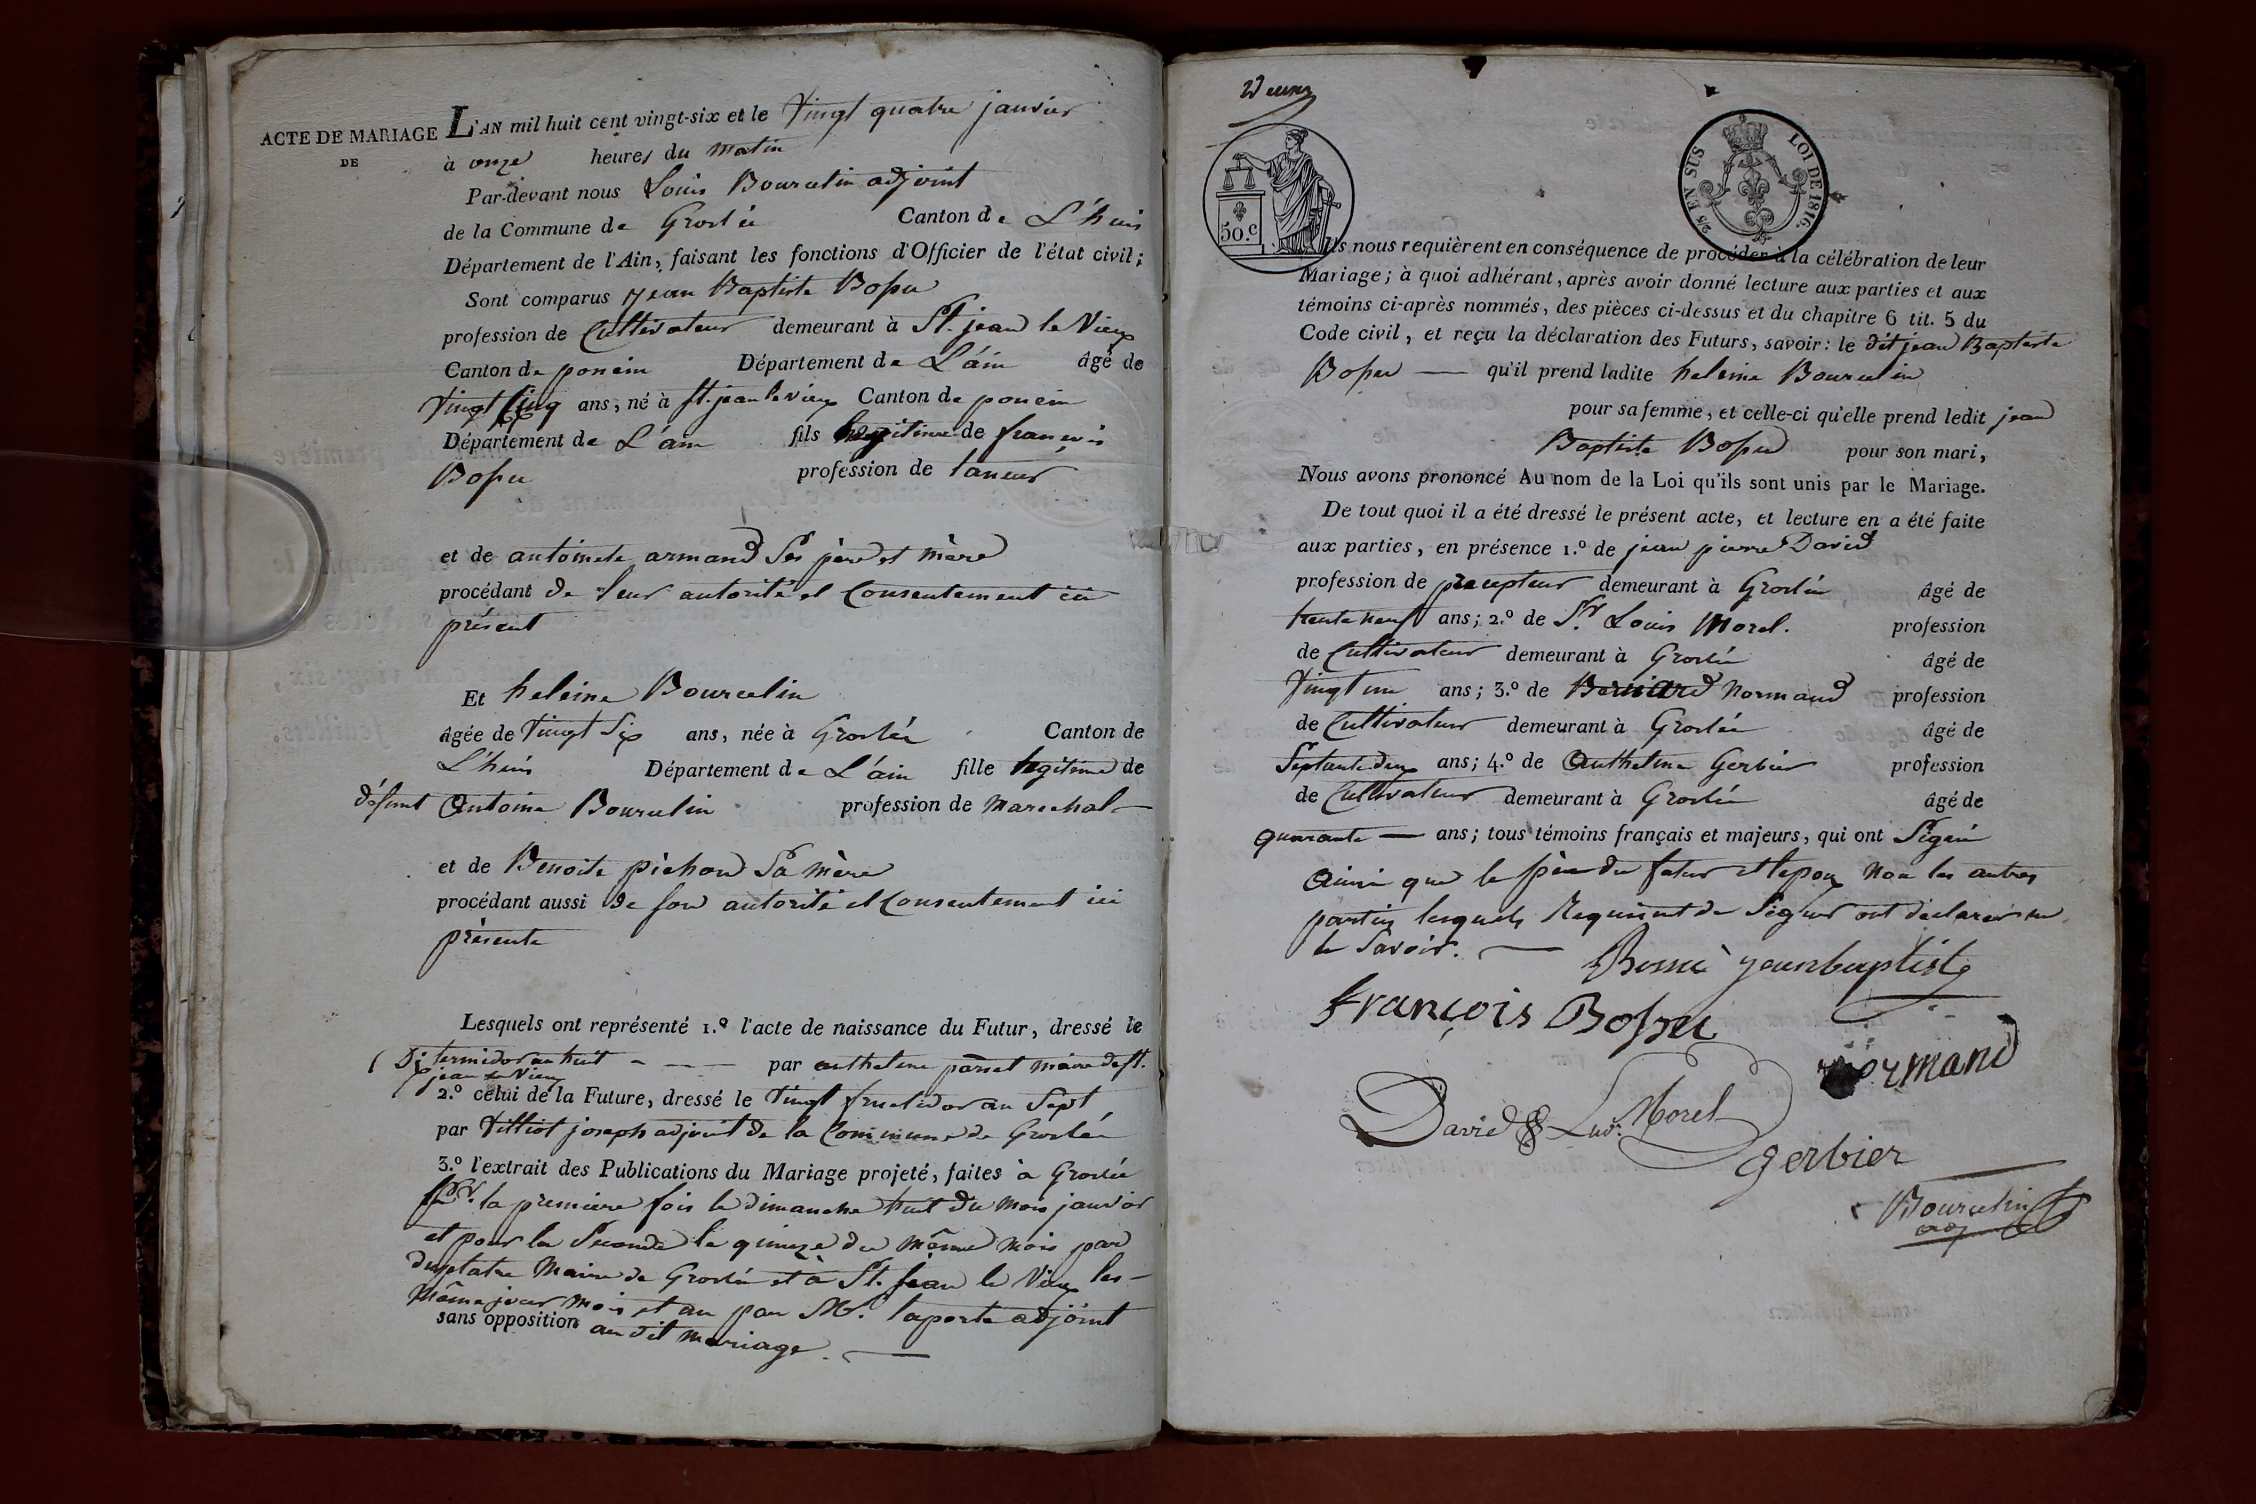 ACTE DE MARIAGE
DE
L'AN mil huit cent vingt-six et le Vingt quatre janvier
à onze heures du matin
Par-devant nous Louis Bourcelin adjoint
de la Commune de Groslée Canton de L'huis
Département de l'Ain, faisant les fonctions d'Officier de l'état civil;
Sont comparus jean Baptiste Bossu
profession de Cultivateur demeurant à St. jean le Vieux
Canton de poncin Département de L'ain âgé de
Vingt Cinq ans, né à St. jean le vieux Canton de poncin
Département de L'ain fils legitime de françois
Bossu profession de taneur
et de antoinete armand Ses père et mère
procédant de leur autorité et Consentement ici
présent
Et heleine Bourcelin
âgée de Vingt Six ans, née à Groslée Canton de
L'huis Département de L'ain fille legitime de
défunt Antoine Bourcelin profession de marechal
et de Benoite pichon Sa mère
procédant aussi de son autorité et Consentement ici
présente
Lesquels ont représenté 1.º l'acte de naissance du Futur, dressé le
Dix termidor an huit par anthelme maire de St.
jean le Vieux
2.º celui de la Future, dressé le Vingt fructidor an Sept
par joseph adjoint de la Commune de Groslée
3.º l'extrait des Publications du Mariage projeté, faites à Groslée
pr. la premiere fois le dimanche huit du mois janvier
et pour la Seconde le quinze du même mois par
maire de Groslée et à St. jean le Vieux les
même jour mois et an par Mr. laporte adjoint
sans opposition au dit mariage.
50.c
25 EN SUS LOI DE 1816.
Ils nous requièrent en conséquence de procéder à la célébration de leur
Mariage; à quoi adhérant, après avoir donné lecture aux parties et aux
témoins ci-après nommés, des pièces ci-dessus et du chapitre 6 tit. 5 du
Code civil, et reçu la déclaration des Futurs, savoir: le dit jean Baptiste
Bossu qu'il prend ladite heleine Bourcelin
pour sa femme, et celle-ci qu'elle prend ledit jean
Baptiste Bossu pour son mari,
Nous avons prononcé Au nom de la Loi qu'ils sont unis par le Mariage.
De tout quoi il a été dressé le présent acte, et lecture en a été faite
aux parties, en présence 1.º de jean pierre David
profession de precepteur demeurant à Groslée âgé de
trente neuf ans; 2.º de Sr. Louis Morel. profession
de Cultivateur demeurant à Groslée âgé de
Vingt un ans; 3.º de Bernard Normand profession
de Cultivateur demeurant à Groslée âgé de
Septante deux ans; 4.º de Anthelme Gerbier profession
de Cultivateur demeurant à Groslée âgé de
quarante ans; tous témoins français et majeurs, qui ont Signé
Ainsi que le père du futur et lepoux Non les autres
parties lesquels Requis de Signer ont déclarer ne
le Savoir.
Bossu jeanbaptiste
françois Bossu
normand
David Lud. Morel
gerbier
Bourcelin
adj